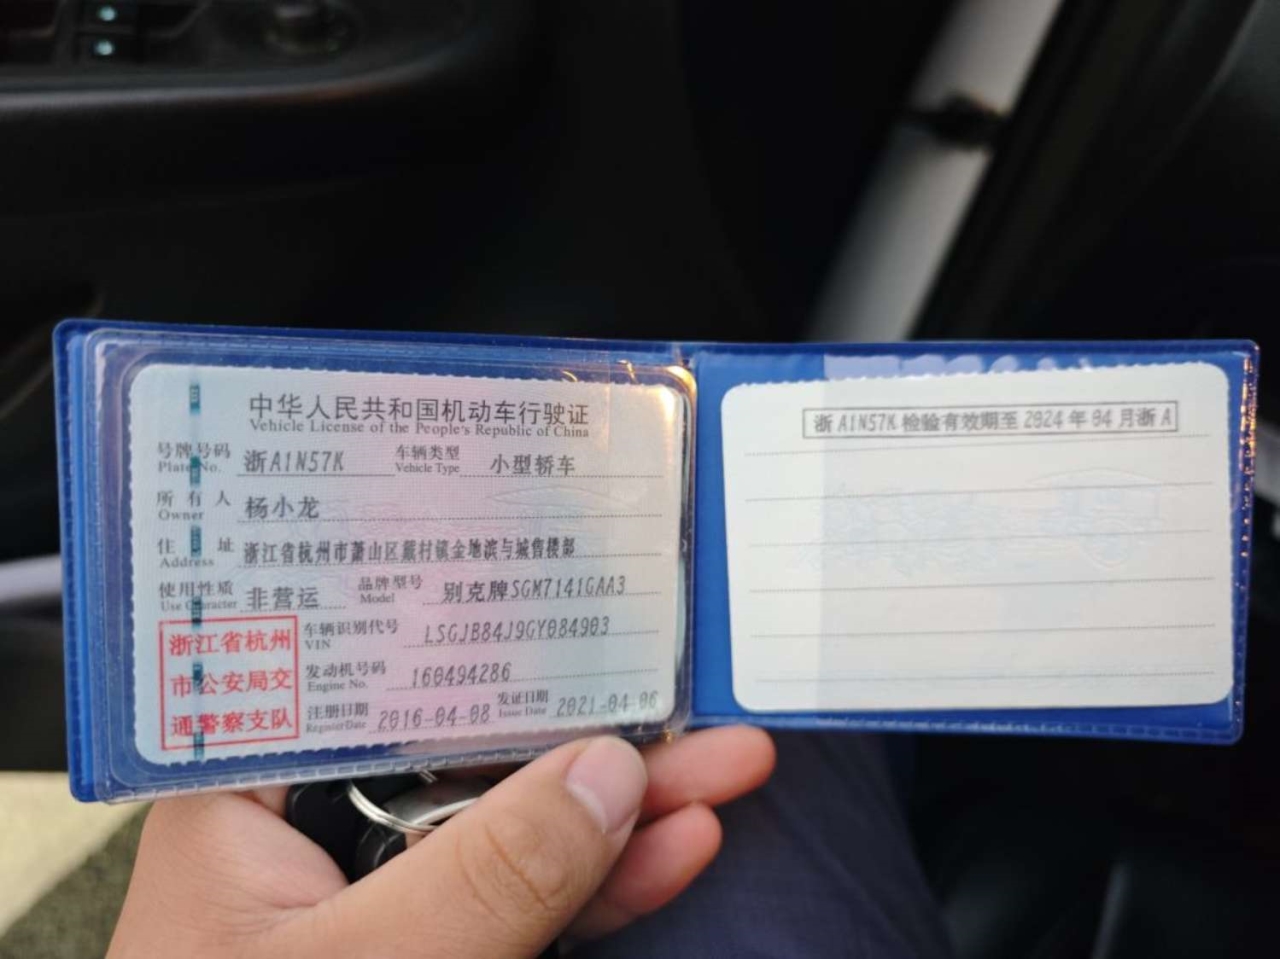 中华人民共和国机动车行驶证
Vehicle License of the People's Republic of China
号牌号码 浙A1N57K 车辆类型 小型轿车
Plate No. Vehicle Type
所有人 杨小龙
Owner
住址 浙江省杭州市萧山区戴村镇金地滨与城售楼部
Address
使用性质 非营运 品牌型号 别克牌SGM7141GAA3
Use Character Model
浙江省杭州
市公安局交
通警察支队
车辆识别代号 LSGJB84J9GY084903
VIN
发动机号码 160494286
Engine No.
注册日期 2016-04-08 发证日期 2021-04-06
Register Date Issue Date
浙A1N57K检验有效期至2024年04月浙A